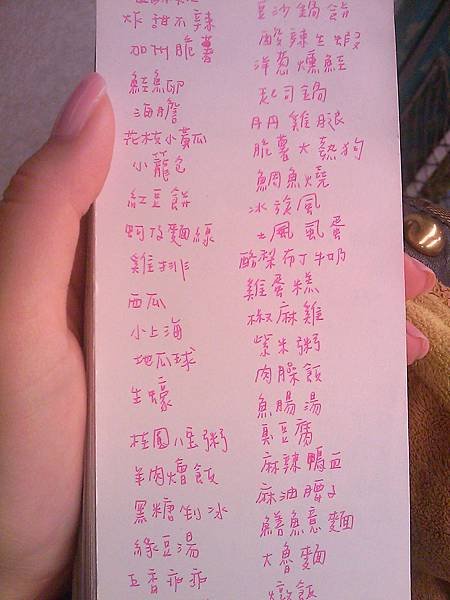 炸甜不辣
加州脆薯
鮭魚卵
海膽
花枝小黃瓜
小籠包
紅豆餅
蚵仔麵線
雞排
西瓜
小上海
地瓜球
生蠔
桂圓八宝粥
羊肉燴飯
黑糖剉冰
綠豆湯
五香乖乖
豆沙鍋餅
酸辣生蝦
洋葱燻鮭
起司鍋
丹丹雞腿
脆薯大熱狗
鯛魚燒
冰旋風
土鳳凰蛋
酪梨布丁牛奶
雞蛋糕
椒麻雞
紫米粥
肉臊飯
魚腸湯
臭豆腐
麻辣鴨血
麻油腰子
鱔魚意麵
大魯麵
燉飯